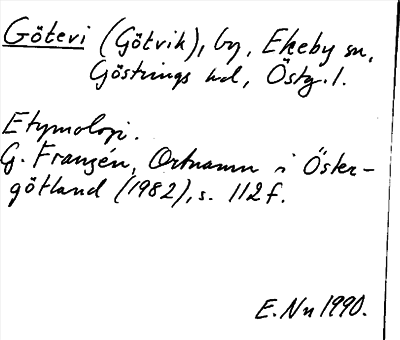 Götevi (Götvik), by, Ekeby sn,
Göstrings hd, Östg. l.
Etymologi.
G. Franzén, Ortnamn i Öster-
götland (1982), s. 112 f.
E. Nn 1990.